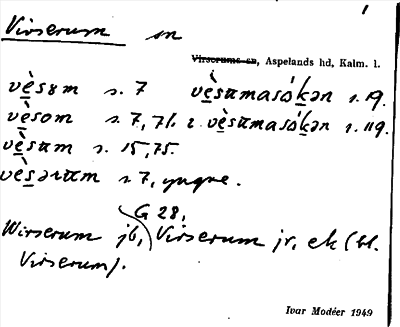 1
Virserum sn
Virserums sn, Aspelands hd, Kalm. l.
vè̱sɤm s. 7 vè̱sɑmasó̱kən s. 19.
vè̱som s. 7, 71. 2. vè̱sɑmasó̱kən s. 119.
vè̱sɑm s. 15, 75.
vès̱əɹɑm s. 7, yngre.
G 28,
Wirserum jb, Virserum jr, ek (bl.
Virserum).
Ivar Modéer 1949